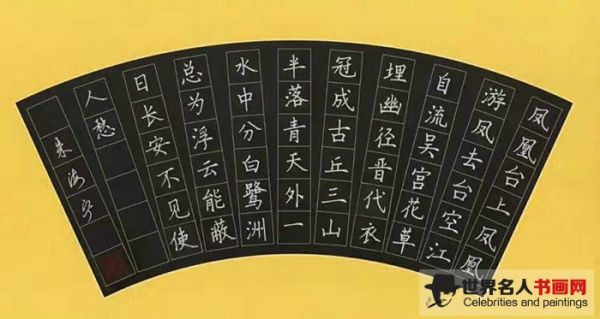 凤凰台上凤凰
游凤去台空江
自流吴宫花草
埋幽径晋代衣
冠成古丘三山
半落青天外一
水中分白鹭洲
总为浮云能蔽
日长安不见使
人愁
朱海宁
世界名人书画网
Celebrities and paintings